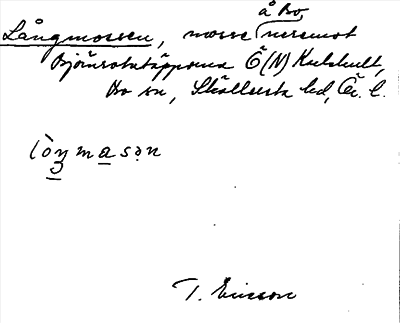 å Bo,
Långmossen, mosse nermot
Björnrotatäpporna Ö(N) Kulshult,
Bo sn, Skållersta hd, Ör. l.
lòŋmasən
T. Ericson